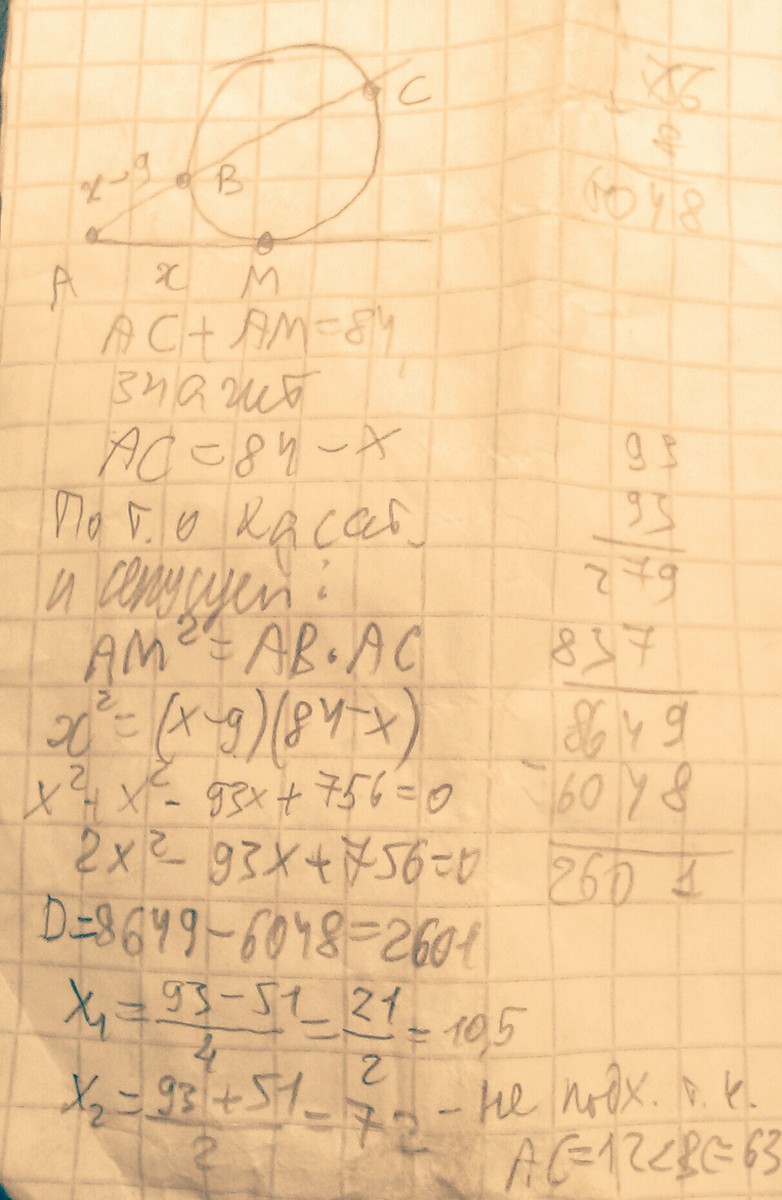 C
x-9
B
A
x
M
AC+AM=84
значит
AC=84-x
По т. о касат.
и секущей:
AM²=AB·AC
x²=(x-9)(84-x)
x²+x²-93x+756=0
2x²-93x+756=0
D=8649-6048=2601
x₁=(93-51)/4=21/2=10,5
x₂=(93+51)/2=72 - не подх. т. к.
AC=12<BC=63
756
8
6048
93
93
279
837
8649
-6048
2601